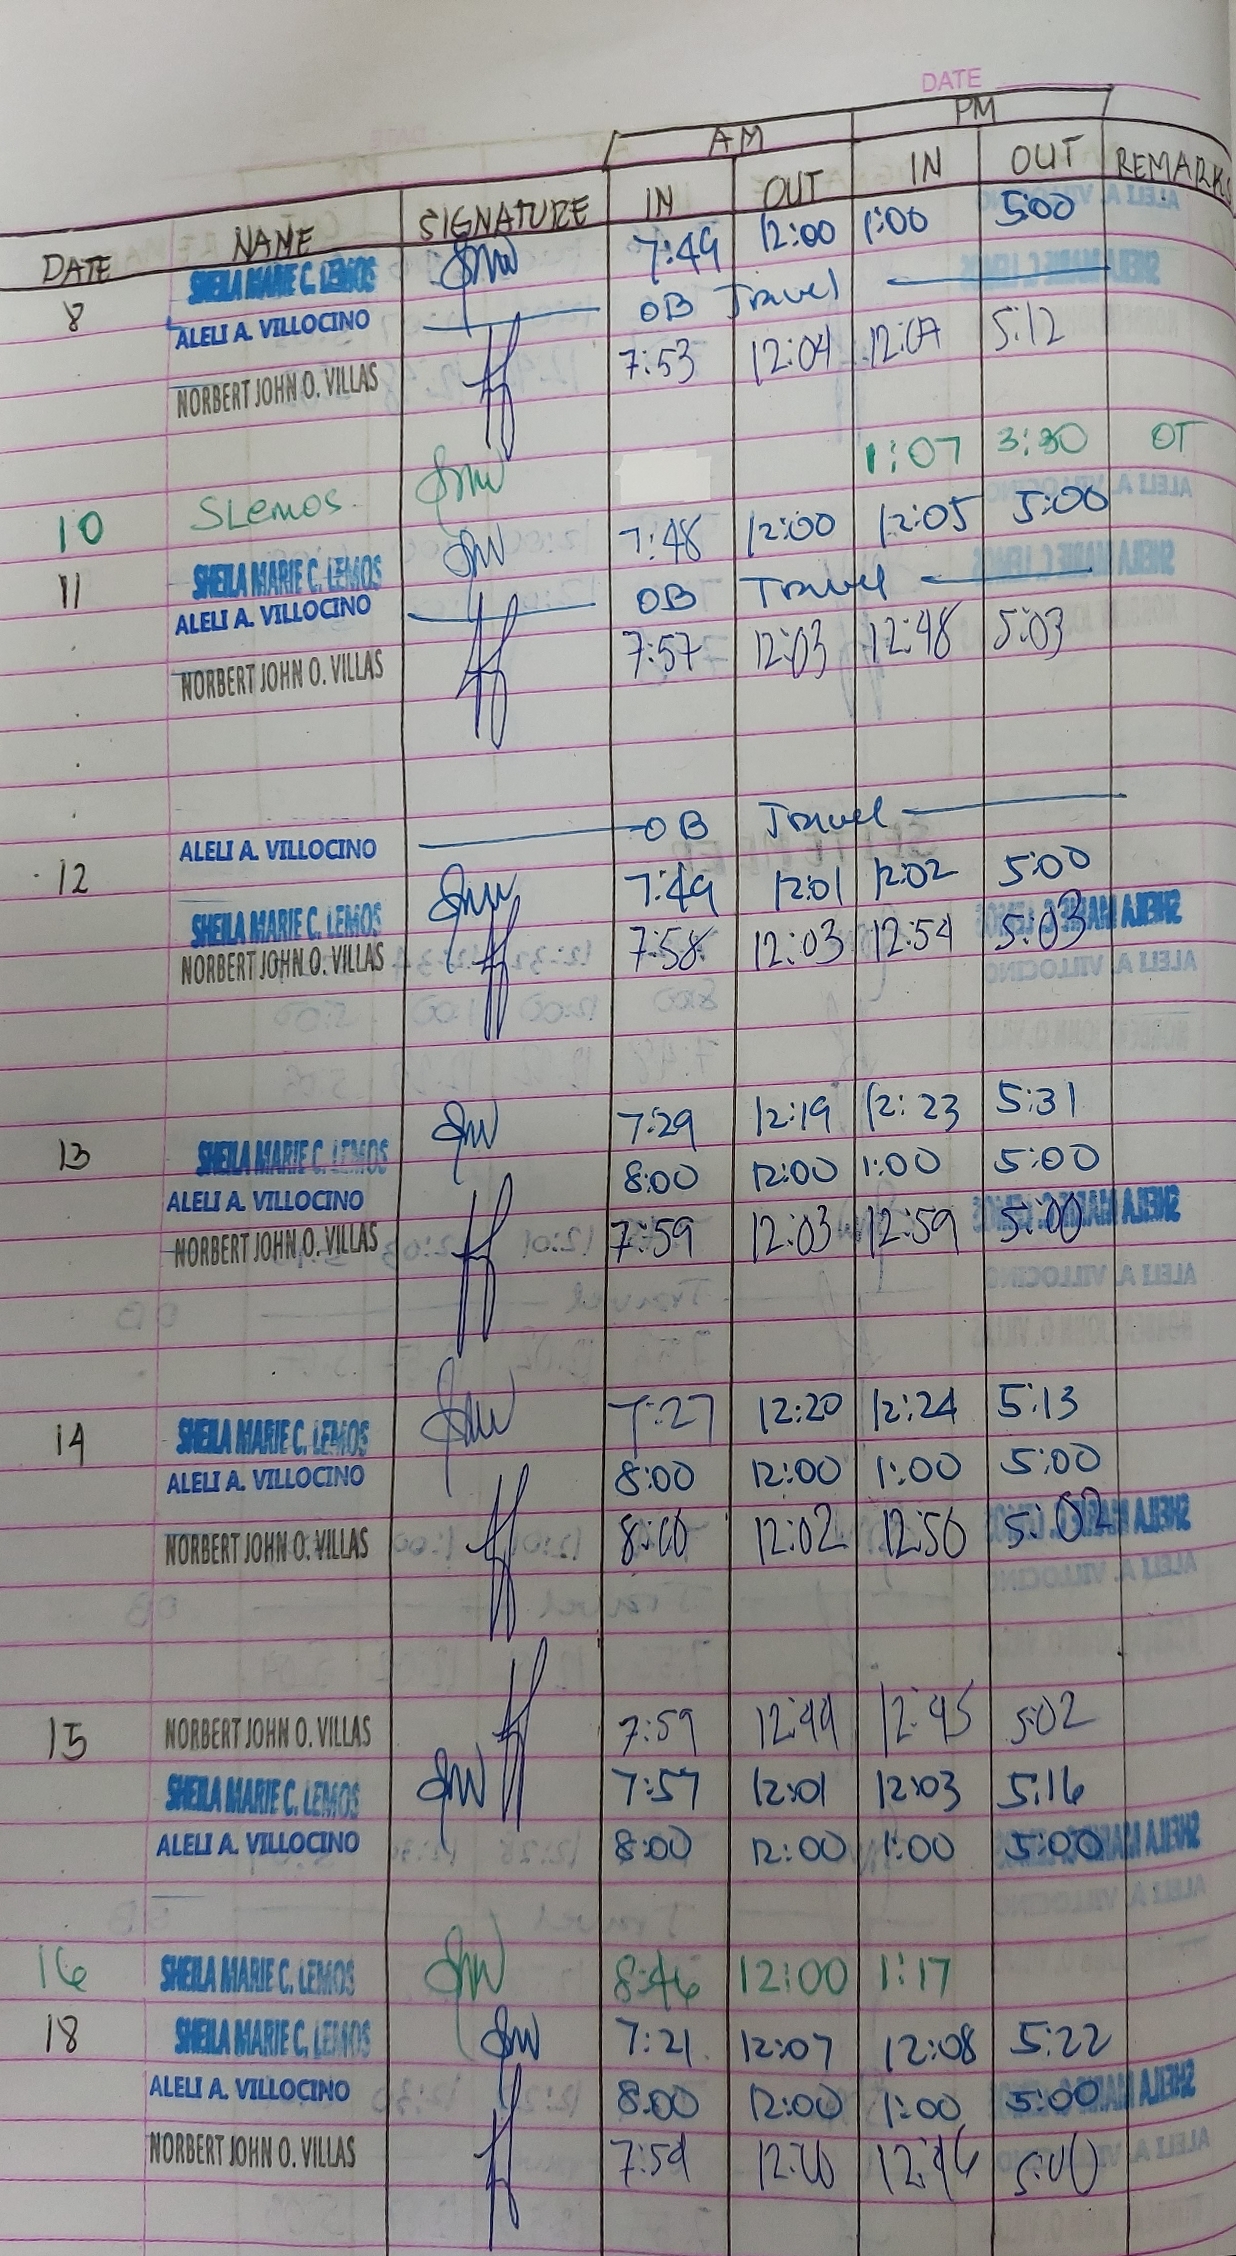 DATE
AM PM
DATE NAME SIGNATURE IN OUT IN OUT REMARKS
8 SHEILA MARIE C. LEMOS 7:49 12:00 1:00 5:00
ALELI A. VILLOCINO OB Travel
NORBERT JOHN O. VILLAS 7:53 12:04 5:12
10 SLemos 1:07 3:30 OT
11 SHEILA MARIE C. LEMOS 7:48 12:00 12:05 5:00
ALELI A. VILLOCINO OB Travel
NORBERT JOHN O. VILLAS 7:57 12:03 12:48 5:03
12 ALELI A. VILLOCINO OB Travel
SHEILA MARIE C. LEMOS 7:49 12:01 12:02 5:00
NORBERT JOHN O. VILLAS 7:58 12:03 12:54 5:03
13 SHEILA MARIE C. LEMOS 7:29 12:19 12:23 5:31
ALELI A. VILLOCINO 8:00 12:00 1:00 5:00
NORBERT JOHN O. VILLAS 7:59 12:03 12:59 5:00
14 SHEILA MARIE C. LEMOS 7:27 12:20 12:24 5:13
ALELI A. VILLOCINO 8:00 12:00 1:00 5:00
NORBERT JOHN O. VILLAS 8:00 12:02 12:50 5:02
15 NORBERT JOHN O. VILLAS 7:59 12:44 12:45 5:02
SHEILA MARIE C. LEMOS 7:57 12:01 12:03 5:16
ALELI A. VILLOCINO 8:00 12:00 1:00 5:00
16 SHEILA MARIE C. LEMOS 8:46 12:00 1:17
18 SHEILA MARIE C. LEMOS 7:21 12:07 12:08 5:22
ALELI A. VILLOCINO 8:00 12:00 1:00 5:00
NORBERT JOHN O. VILLAS 7:54 12:46 5:00